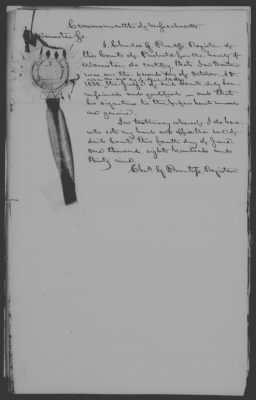 Commonwealth of Massachusetts
Worcester Ss.
I, Charles G. Prentiss, Register of
the Court of Probate for the County of
Worcester, do certify that Ira Barton
was on the second day of October A.D.
1838, the Judge of said Court duly com
missioned and qualified — and that
his signature to the
are genuine.
In testimony whereof, I do here
unto set my hand and affix the seal of
said Court this fourth day of June
one thousand eight hundred and
thirty nine.
Chas G. Prentiss, Register